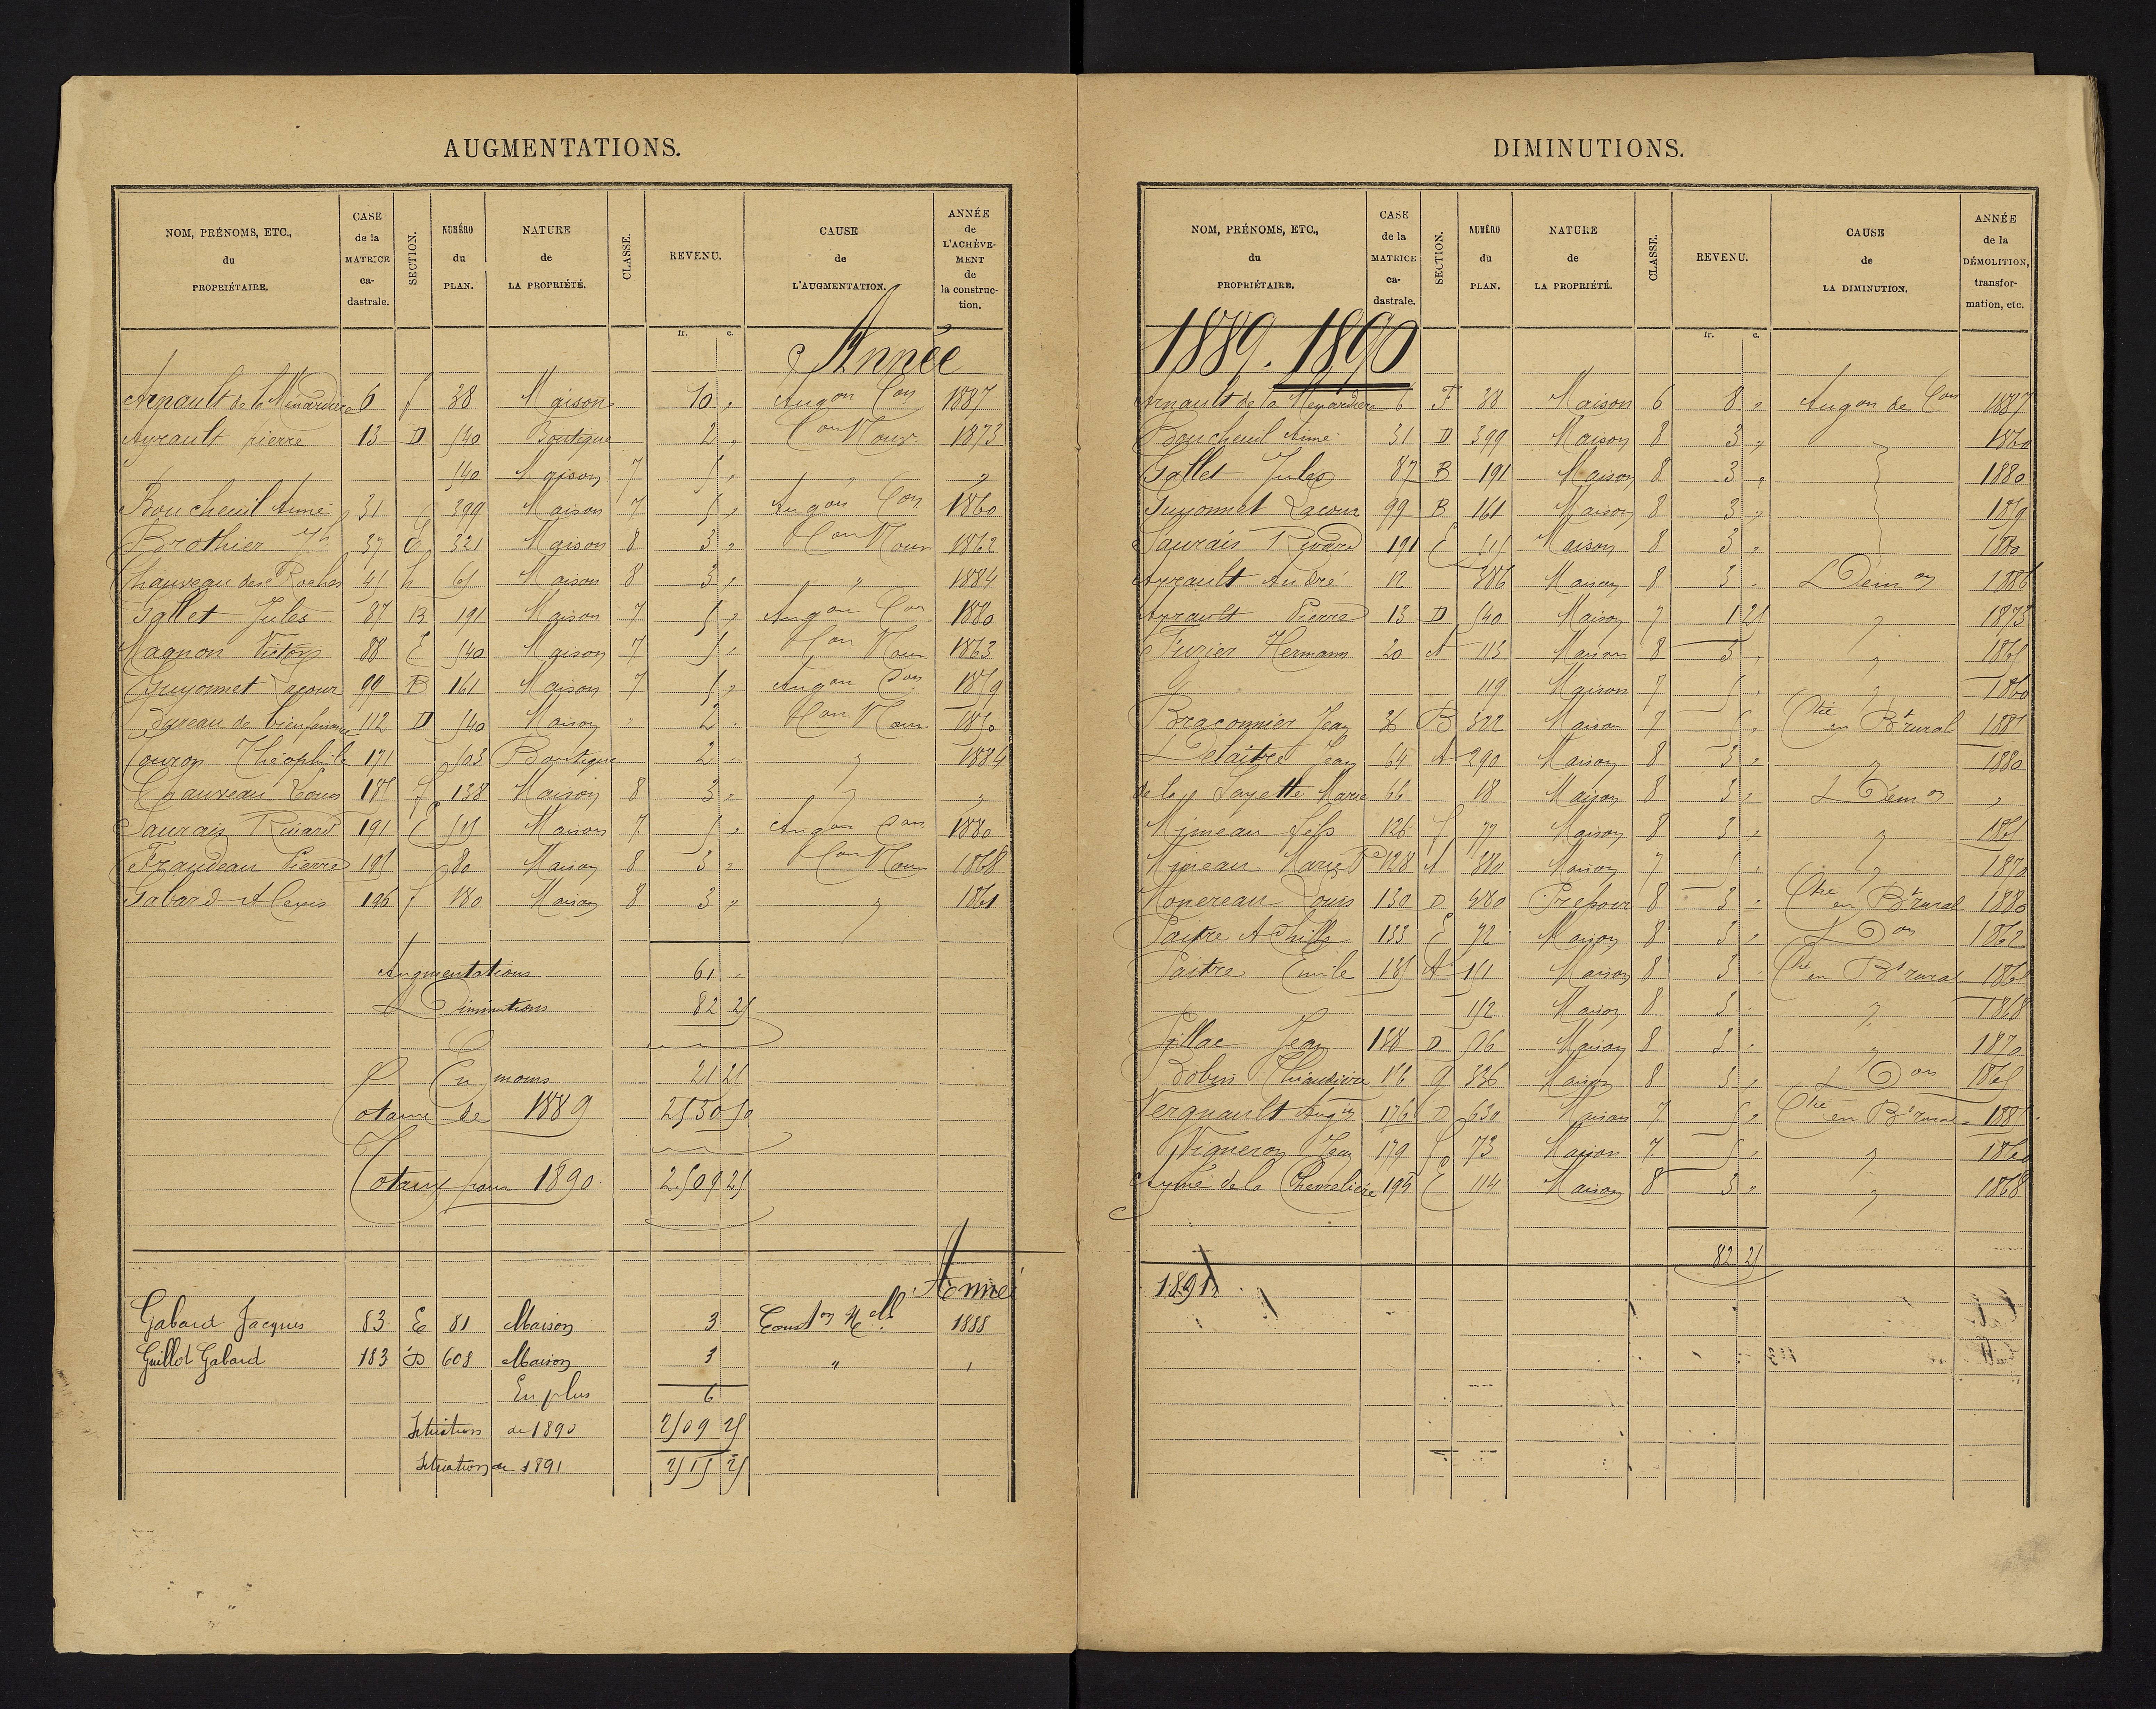 AUGMENTATIONS.
NOM, PRÉNOMS, ETC., du PROPRIÉTAIRE. CASE de la MATRICE ca- dastrale. SECTION. NUMÉRO du PLAN. NATURE de LA PROPRIÉTÉ. CLASSE. REVENU. CAUSE de L'AUGMENTATION. ANNÉE de L'ACHÈVE- MENT de la construc- tion.
fr. c.
Année
Arnault de la Menardiere 6 f 38 Maison 10 " Augon Con 1887
Ayrault pierre 13 D 540 Boutique 2 " Con Nouv. 1873
540 Maison 7 5 " " "
Boucheuil Aimé 31 399 Maison 7 5 " Augon Con 1860
Brothier Jh 37 E 321 Maison 8 3 " Con Nouv 1862
Chauveau des Roches 41 h 65 Maison 8 3 " " " 1884
Gallet Jules 87 B 191 Maison 7 5 " Augon Con 1880
Magnon Victor 88 E 540 Maison 7 5 " Con Nouv 1863
Guyonnet Lacour 99 B 161 Maison 7 5 " Augon Con 1859
Bureau de bienfaisance 112 D 540 Maison " 2 " Con Nouv. 1850
Couron Théophile 171 503 Boutique 2 " " 1884
Chauveau Louis 185 f 138 Maison 8 3 " " "
Saurais Rivard 191 E 515 Maison 7 5 " Augon Con 1880
Fraudeau Pierre 195 80 Maison 8 3 " Con Nouv 1868
Gabard Alexis 196 f 180 Maison 8 3 " " 1861
Augmentations 61 "
Diminutions 82 25
En moins 21 25
Totaux de 1889 2530 50
Totaux pour 1890 2509 25
Année
Gabard Jacques 83 E 81 Maison 3 Conston Nelle 1888
Guillot Gabard 183 D 608 Maison 3 " "
En plus 6
Situation de 1890 2509 25
Situation de 1891 2515 25
DIMINUTIONS.
NOM, PRÉNOMS, ETC., du PROPRIÉTAIRE. CASE de la MATRICE ca- dastrale. SECTION. NUMÉRO du PLAN. NATURE de LA PROPRIÉTÉ. CLASSE. REVENU. CAUSE de LA DIMINUTION. ANNÉE de la DÉMOLITION, transfor- mation, etc.
fr. c.
1889. 1890
Arnault de la Menardiere 6 F 38 Maison 6 8 " Augon de Con 1887
Boucheuil Aimé 31 D 399 Maison 8 3 " 1860
Gallet Jules 87 B 191 Maison 8 3 " 1880
Guyonnet Lacour 99 B 161 Maison 8 3 " 1859
Saurais Rivard 191 E 515 Maison 8 3 " 1880
Ayrault André 12 386 Maison 8 3 " Démon 1886
Ayrault Pierre 13 D 540 Maison 7 1 25 " 1873
Fuzier Hermann 20 A 113 Maison 8 3 " " 1865
119 Maison 7 5 " " 1860
Braconnier Jean 36 B 322 Maison 7 5 " en Bt rural 1885
Delaitre Jean 64 A 290 Maison 8 3 " " 1880
de la Fayette Marie 66 18 Maison 8 3 " Démon "
Mimeau fils 126 f 77 Maison 8 3 " " 1865
Mimeau Marie 128 A 380 Maison 7 5 " " 1870
Monereau Louis 130 D 480 8 3 " en Bt rural 1880
Paitre Achille 133 E 72 Maison 8 3 " Don 1862
Paitre Emile 135 A 151 Maison 8 3 " en Bt rural 1865
152 Maison 8 3 " " 1868
Pillac Jean 138 D 526 Maison 8 3 " " 1870
Robin 156 g 336 Maison 8 3 " Don 1865
Vergnault Augin 176 D 630 Maison 7 5 " en Bt rural 1885
Vigneron Jean 179 f 73 Maison 7 5 " " 1860
Aymé de la Chevreliere 194 E 114 Maison 8 3 " " 1868
82 25
1891